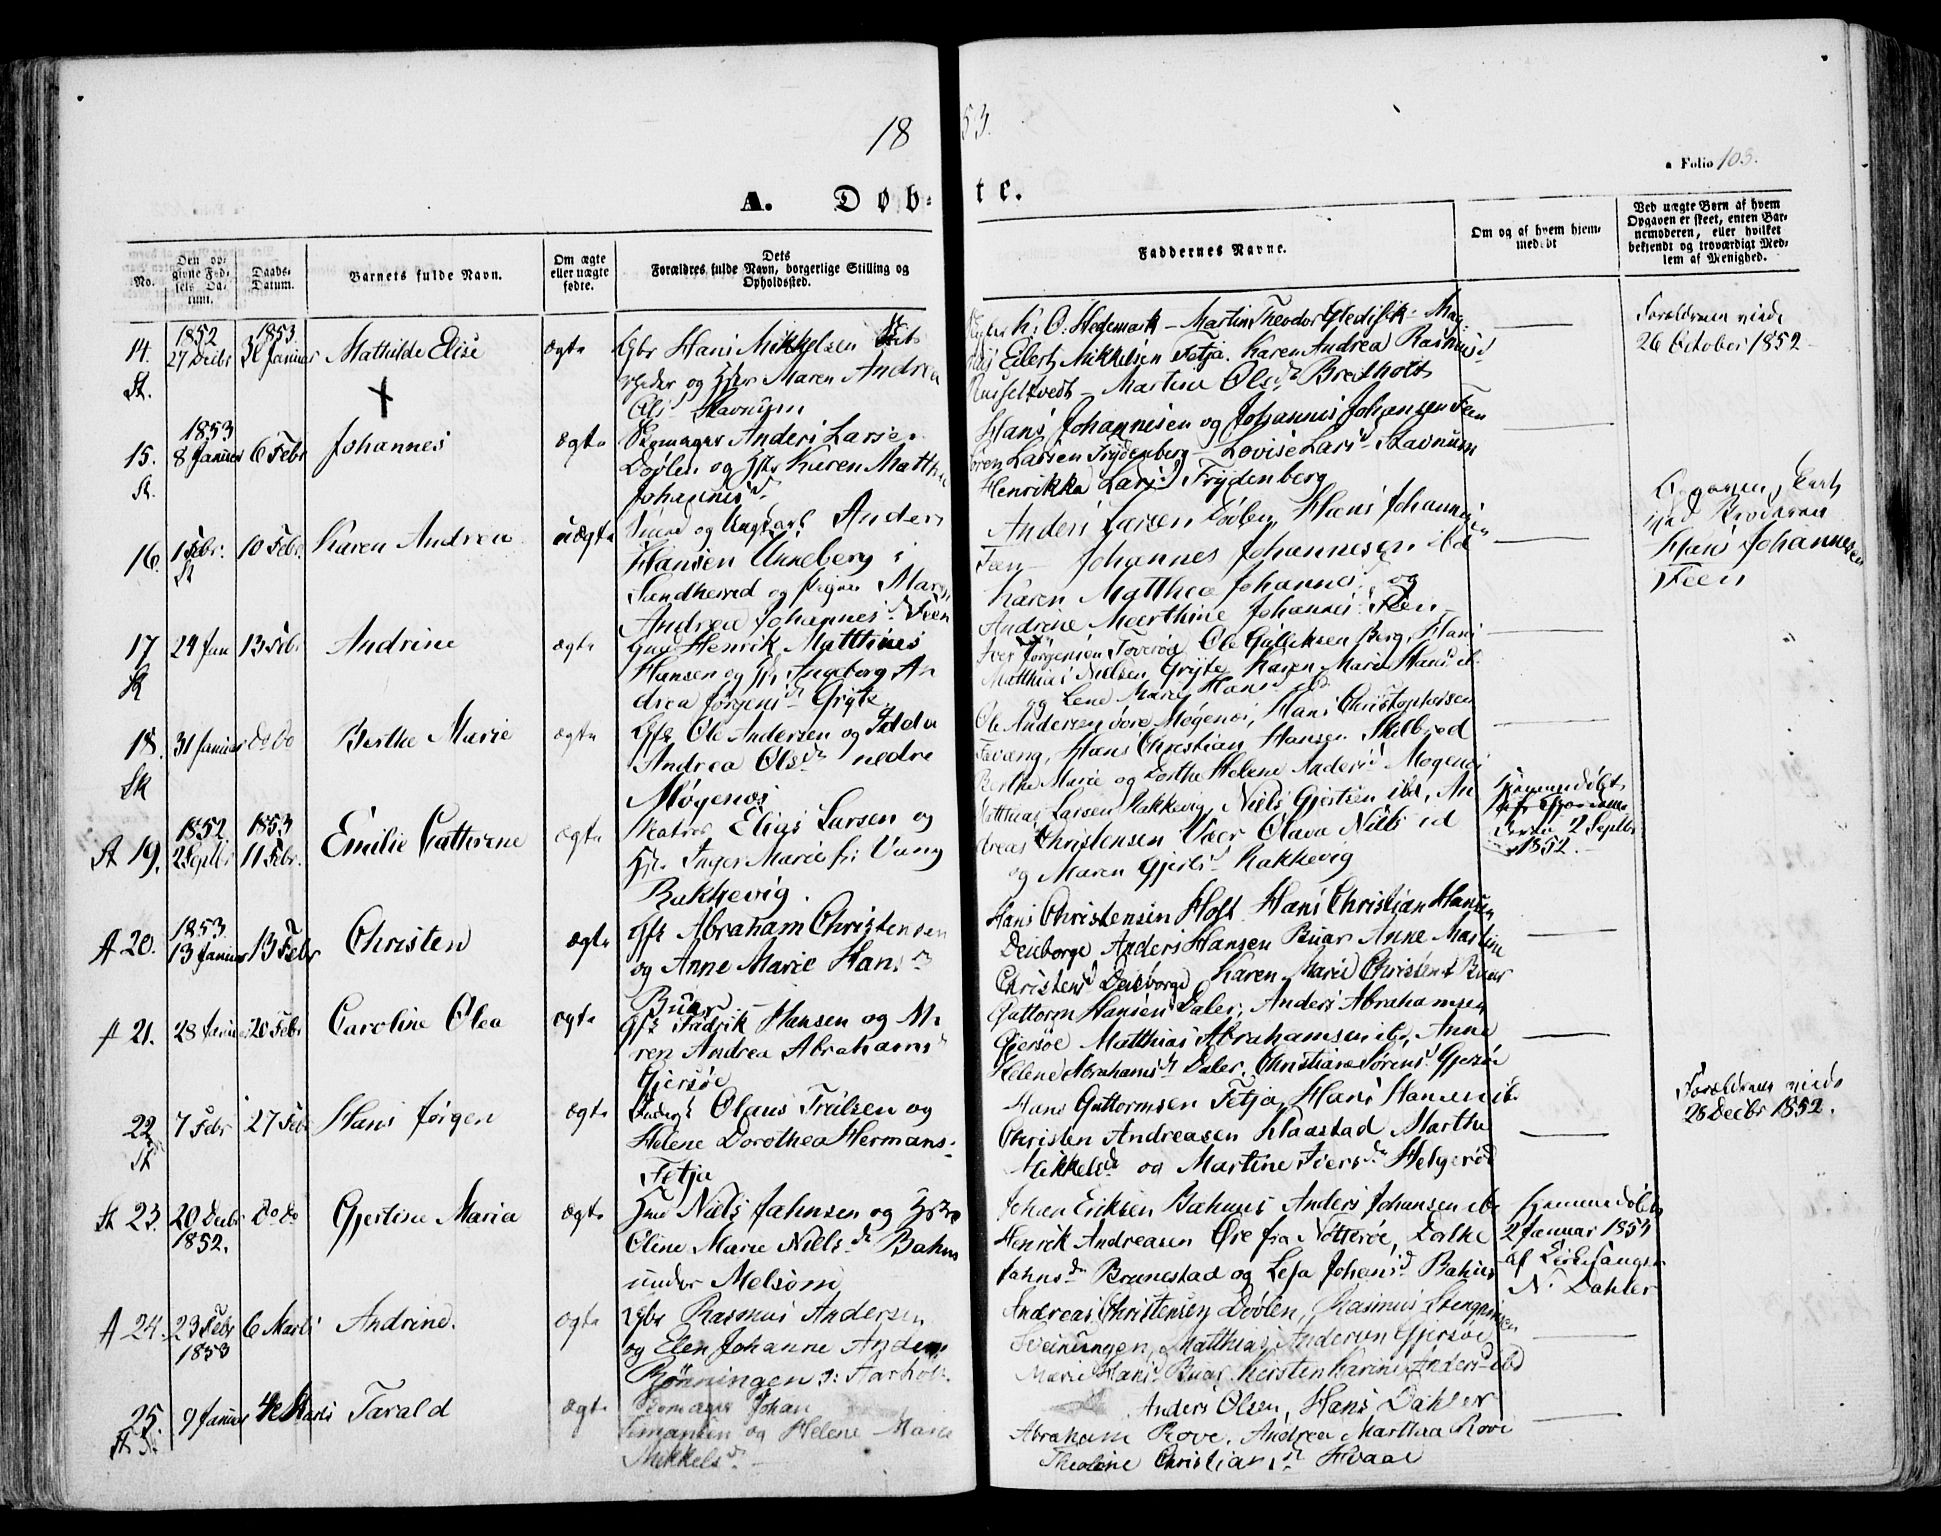 1853.
a Folio 103.
A. Døbte.
No.
Den opgivne Fødsels Datum.
Daabs-Datum.
Barnets fulde Navn.
Om ægte eller uægte fødte.
Dets Forældres fulde Navn, borgerlige Stilling og Opholdssted.
Faddernes Navne.
Om og af hvem hjemmedøbt
Ved uægte Børn af hvem Opgaven er skeet, enten Barnemoderen, eller hvilket bekjendt og troværdigt Medlem af Menighed.
14. St. 1852 27 Decbr 1853 30 Januar Mathilde Elise ægte
Gbr Hans Mikkelsen
og Hstr Maren Andrea
Ols Stavnum
K. O. Hedemark – Martin Theodor Gledisck – Mat
Eilert Mikkelsen Fetja. Karen Andrea Rasmusd
Russeltvedt – Martine Olsd Breiholt
Forældrene viede
26 October 1852
15. St. 1853 8 Januar 6 Febr Johannes ægte
Skomager Anders Larse
Døvlen og Hstr Karen Matthea
Johannesd
Hans Johannesen og Johannes Johansen Fæn
Søren Larsen Frydenberg – Lovise Larsd Stavnum
Henrikka Larsd Frydenberg
16. St 1 Febr. 10 Febr. Karen Andrea uægte
og Ungkarl Anders
Hansen Unneberg i
Sandherred og Pigen Maren
Andrea Johannesd Feen
Anders Larsen Døvlen, Hans Johannesen
Fæn – Johannes Johannesen ibd
Karen Matthea Johannesd og
Andrine Meerthine Johannesd Feen
Opgaven skeet
ved Broderen
Hans Johannesen
Feen
17 Sk 24 Jan 13 Febr Andrine ægte
Gmd Henrik Matthias
Hansen og Hstr Ingeborg An
drea Jørgensd Gryte
Iver Jørgensen Foverød Ole Gulliksen Berg, Hans
Matthias Nielsen Gryte Karen Marie Hansd
og Lene Marie Hansd ibd
18. Sk 31 Januar do do Berthe Marie ægte
Gfr Ole Andersen og Idde
Andrea Olsd nedre
Møgenøs
Ole Andersen øvre Møgenøs, Hans Christophersen
Fevang, Hans Christian Hansen Skelbred
Berthe Marie og Dorthe Helene Andersd Mogenøs
St 19. 1852 2 Septbr 1853 11 Febr. Emilie Cathrine ægte
Matros Elias Larsen og
Hstr Inger Marie f: Vang
Rakkevig.
Matthias Larsen Rakkevig, Niels Gjertsen ibd, An
dreas Christensen Væer Olava Nielsd ibd
og Maren Gjertsd Rakkevig
Hjemmedøbt
2 Septbr
1852.
A 20. 1853 13 Januar 13 Febr Christen ægte
Gfr Abraham Christensen
og Anne Marie Hansd
Buer
Hans Christensen Holt Hans Christian Hansen
Deieborge Anders Hansen Buar Anne Martine
Christensd Deieborge Karen Marie Christensd Buer
A 21. 28 Januar 20 Febr Caroline Olea ægte
Gfr Fadrik Hansen og Ma
ren Andrea Abrahamsd
Gjersøe
Guttorm Hansen Daler, Anders Abrahamsen
Gjersøe Matthias Abrahamsen ibd, Anne
Helene Abrahamsd Daler, Christiane Sørensd Gjersøe
22 St 7 Febr 27 Febr Hans Jørgen ægte
Inderst Olaus Trulsen og
Helene Dorothea Hermans-
Fetja
Hans Guttormsen Fetja Hans Hansen ibd
Christen Andreasen Klaastad Marthe
Mikkelsd og Martine Iversd Helgerød
Forældrene viede
28 Decbr 1852.
St 23. 20 Decbr 1852. do do Gjertine Maria ægte
Hmd Niels Jahnsen og Hstr
Oline Marie Nielsd Bahus
under Melsom
Johan Eriksen Bahuus Anders Johansen ibd
Henrik Andreasen Øre fra Nøtterøe, Dorthe
Jahnsd Brunestad og Lisa Johansd Bahus
Hjemmedøbt
2 Januar 1853
af Kirkesanger
N. Dahler
A 24. 23 Febr 1853 6 Marts Andrine. ægte
Gbr Rasmus Andersen
og Elen Johanne Anders
Rønningen u: Aarholt
Andreas Christensen Døvlen, Rasmus Stengrimsen
Sveinungen, Matthias Andersen Gjersøe
Marie Hansd Buar Kersten Karine Andersd ibd
25. St 9 Januar Marts Tarald ægte
Skomager Johan
Simonsen og Helene Marie
Mikkelsd
Anders Olsen, Hans Dahler
Abraham Rove, Andrea Marthea Rove
Theoline Christiansd Hvaal